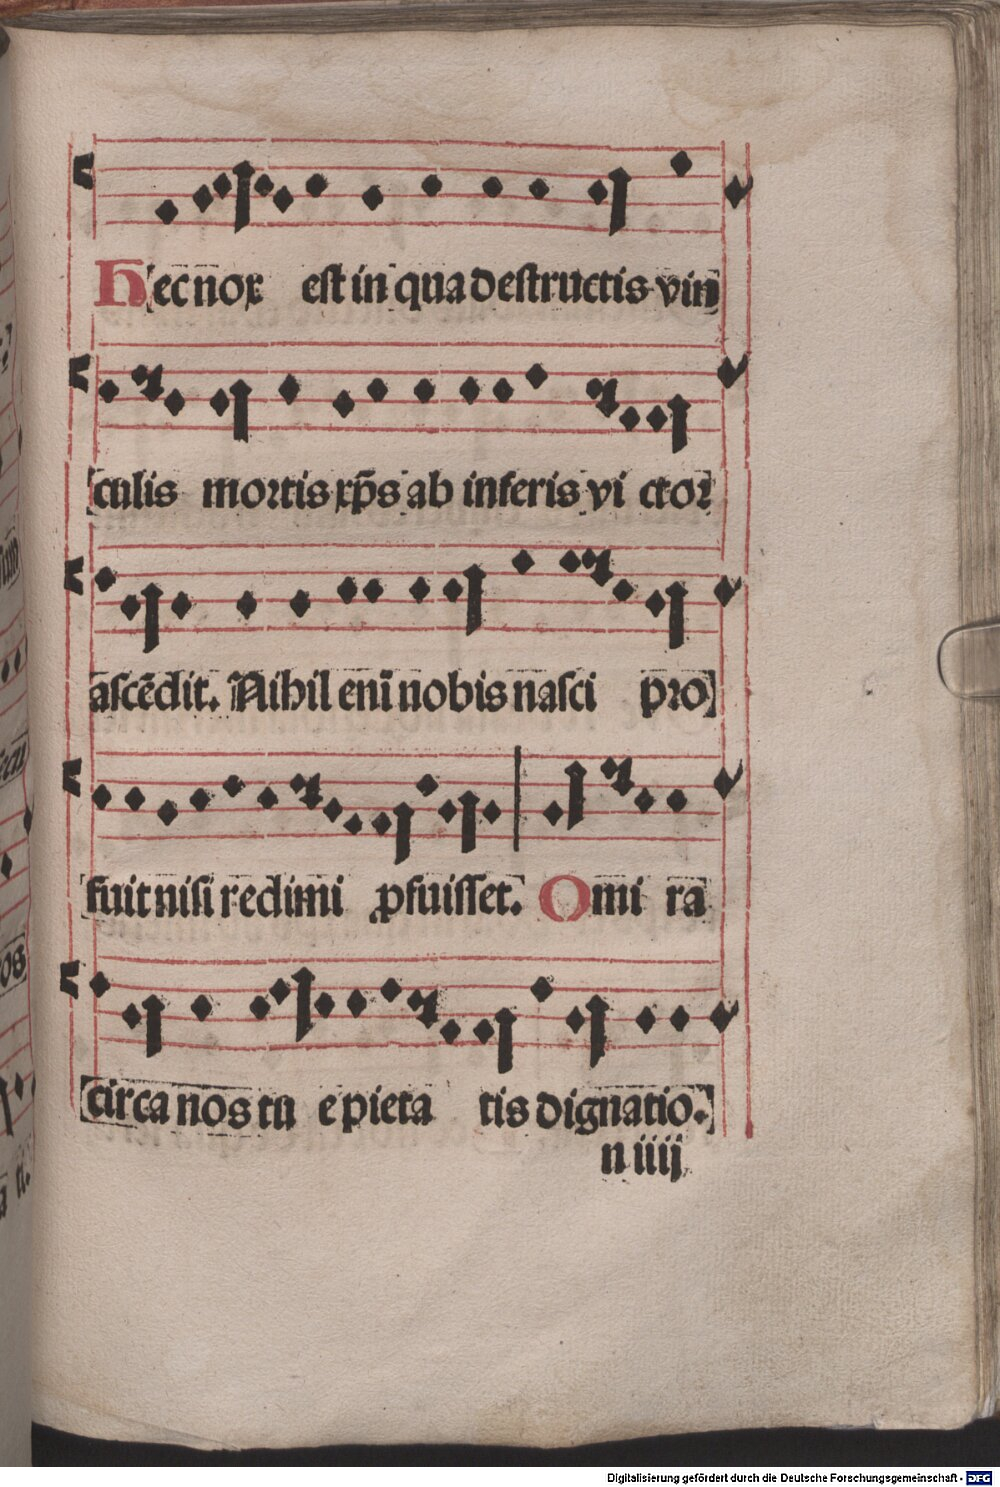 Hec nox est in qua destructis vin
culis mortis xp̄s ab inferis vi ctor
ascēdit. Nihil enī nobis nasci pro
fuit nisi redimi ꝓfuisset. O mi ra
circa nos tu e pieta tis dignatio.
n iiij
Digitalisierung gefördert durch die Deutsche Forschungsgemeinschaft - DFG